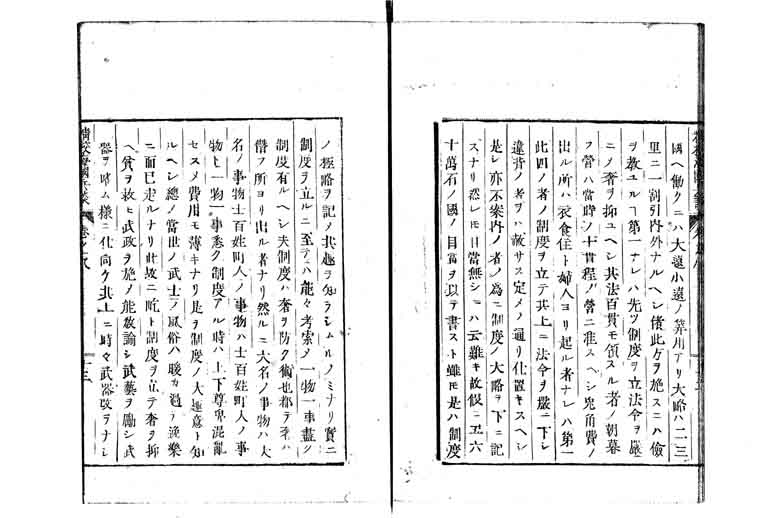 國ヘ働クニハ大遠小遠ノ算用アリ大略ハ二三
里ニ一割引内外ナルヘシ偖此方ヲ施スニハ儉
ヲ教ユルヿ第一ナレハ先ツ制度ヲ立法令ヲ嚴
ニノ奢ヲ抑ユヘシ其法百貫モ領スル者ノ朝暮
ノ營ハ當時ノ十貫程ノ營ニ准スヘシ兎角費ノ
出ル所ハ衣食住ト婦人ヨリ起ル者ナレハ第一
此四ノ者ノ制度ヲ立テ其上ニ法令ヲ嚴ニ下シ
違背ノ者ヲハ赦サス定メノ通リ仕置キスヘシ
是レ亦不案内ノ者ノ爲ニ制度ノ大略ヲ下ニ記
スナリ然レモ目當無シニハ云難キ故假ニ五六
十萬石ノ國ノ目當ヲ以テ書スト雖モ是ハ制度
ノ極略ヲ記メ其趣ヲ知ラシムルノミナリ實ニ
制度ヲ立ルニ至テハ能々考索メ一物一事盡ク
制度有ルヘシ夫制度ハ奢ヲ防ク術也都テ奢ハ
僭フ所ヨリ出ル者ナリ然ルニ大名ノ事物ハ大
名ノ事物士百姓町人ノ事物ハ士百姓町人ノ事
物ト一物一事悉ク制度アル時ハ上下尊卑混亂
セスメ費用モ薄キナリ是ヲ制度ノ大趣意ト知
ルヘシ總メ當世ノ武士ノ風俗ハ暖カ過テ逸樂
ニ而已走ルナリ此故ニ叱ト制度ヲ立テ奢ヲ抑
ヘ貧ヲ救ヒ武政ヲ施メ能教諭シ武藝ヲ勵シ武
器ヲ嗜ム樣ニ仕向ケ其上ニ時々武器改ヲナシ
精校海國兵談 卷之八 十三